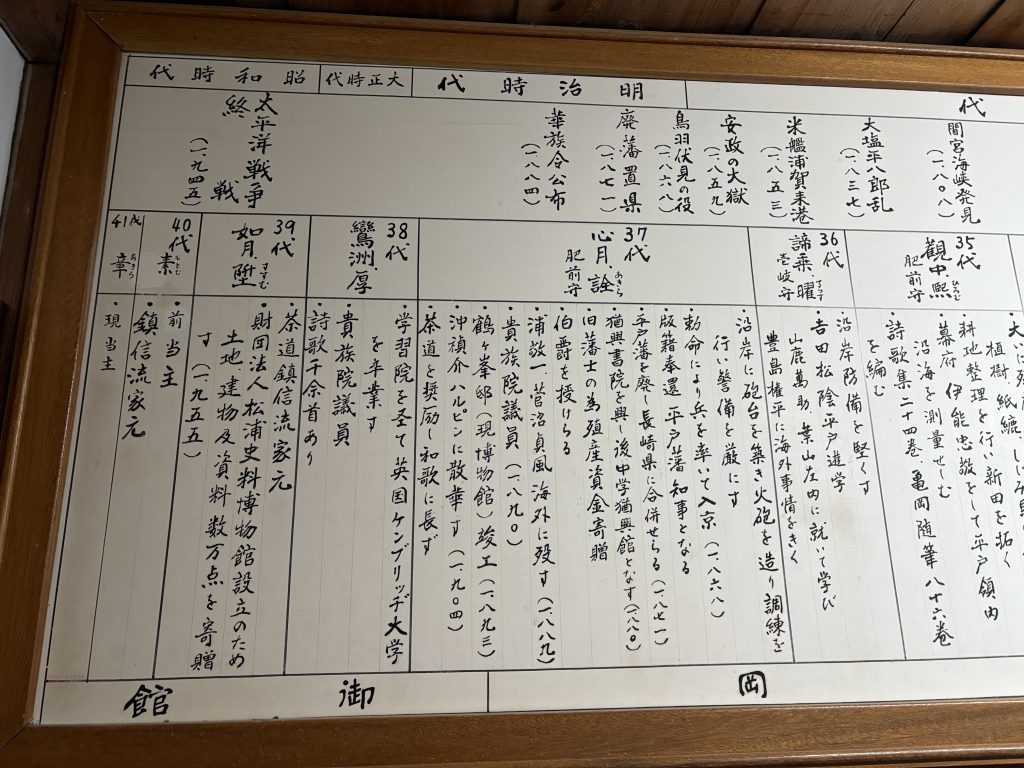 代
明治時代
大正時代
昭和時代
間宮海峡発見
(一、八〇八)
大塩平八郎乱
(一、八三七)
米艦浦賀来港
(一、八五三)
安政の大獄
(一、八五九)
鳥羽伏見の役
(一、八六八)
廃藩置県
(一、八七一)
華族令公布
(一、八八四)
太平洋戦争
終戦
(一、九四五)
35代
觀中、熙
ひろむ
肥前守
植樹
・耕地整理を行い新田を拓く
・幕府 伊能忠敬をして平戸領内
沿海を測量せしむ
・詩歌集二十四巻 亀岡随筆八十六巻
を編む
36代
諦乗、曜
てらす
壱岐守
・沿岸防備を堅くす
・吉田松陰平戸遊学
山鹿萬助 葉山左内に就いて学び
豊島権平に海外事情をきく
37代
心月、詮
あきら
肥前守
・沿岸に砲台を築き火砲を造り調練を
行い警備を厳にす
・勅命により兵を率いて入京(一、八六八)
・版籍奉還 平戸藩知事となる
・平戸藩を廃し長崎県に合併せらる(一、八七一)
・猶興書院を興し後中学猶興館となす(一、八八〇)
・旧藩士の為殖産資金寄贈
・伯爵を授けらる
・浦敬一 菅沼貞風海外に歿す(一、八八九)
・貴族院議員(一、八九〇)
・鶴ヶ峯邸(現博物館)竣工(一、八九三)
・沖禎介ハルピンに散華す(一、九〇四)
・茶道を奨励し和歌に長ず
38代
鸞洲、厚
・学習院を圣て英国ケンブリッヂ大学
を卒業す
・貴族院議員
・詩歌千余首あり
39代
如月、陞
すすむ
・茶道鎮信流家元
・財団法人松浦史料博物館設立のため
土地・建物及資料数万点を寄贈
す(一、九五五)
40代
素
もとむ
・前当主
・鎮信流家元
41代
章
あきら
・現当主
岡
御館